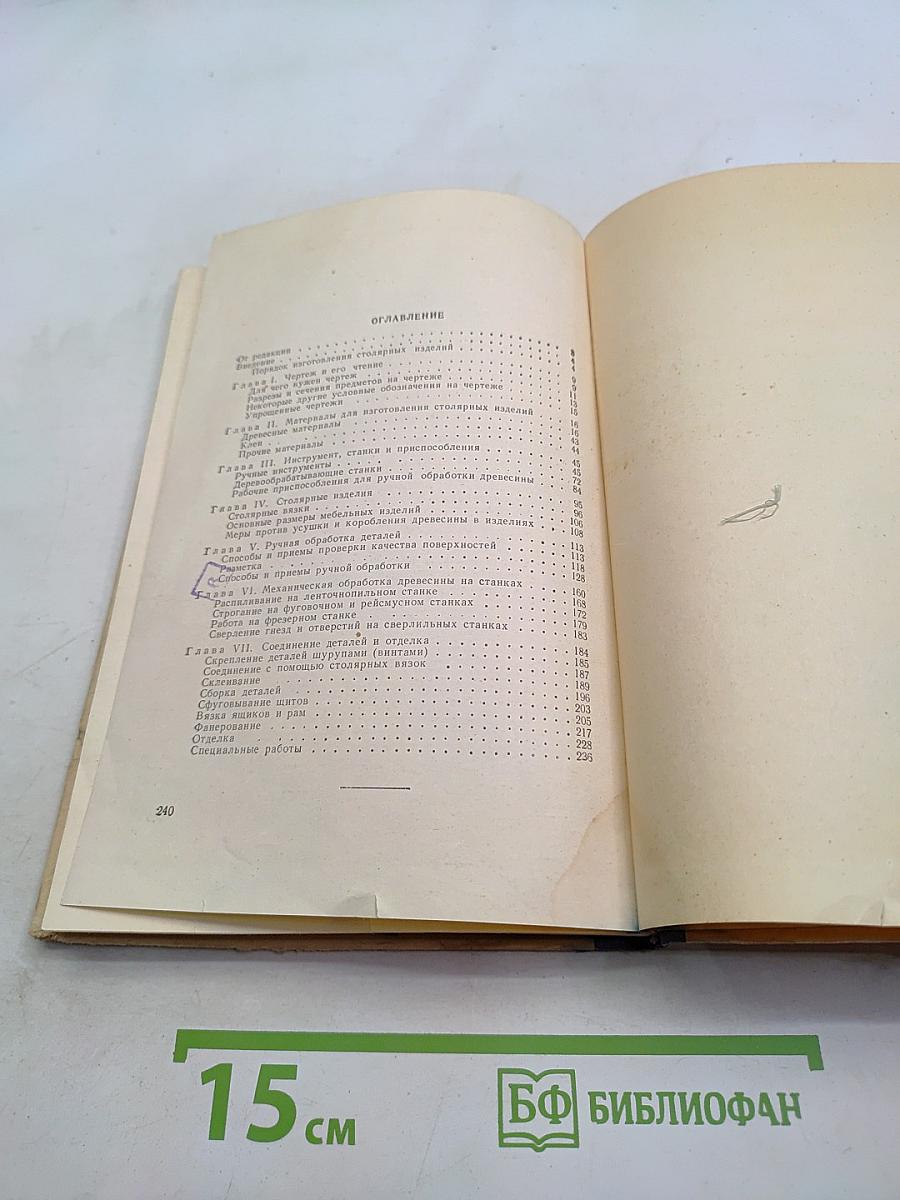 ОГЛАВЛЕНИЕ
От редакции . . . 3
Введение . . . 4
Порядок изготовления столярных изделий . . . 4
Глава I. Чертеж и его чтение . . . 9
Для чего нужен чертеж . . . 9
Разрезы и сечения предметов на чертеже . . . 11
Некоторые другие условные обозначения на чертеже . . . 13
Упрощенные чертежи . . . 15
Глава II. Материалы для изготовления столярных изделий . . . 16
Древесные материалы . . . 16
Клеи . . . 43
Прочие материалы . . . 44
Глава III. Инструмент, станки и приспособления . . . 45
Ручные инструменты . . . 45
Деревообрабатывающие станки . . . 72
Рабочие приспособления для ручной обработки древесины . . . 84
Глава IV. Столярные изделия . . . 95
Столярные вязки . . . 96
Основные размеры мебельных изделий . . . 106
Меры против усушки и коробления древесины в изделиях . . . 108
Глава V. Ручная обработка деталей . . . 113
Способы и приемы проверки качества поверхностей . . . 113
Разметка . . . 118
Способы и приемы ручной обработки . . . 128
Глава VI. Механическая обработка древесины на станках . . . 160
Распиливание на ленточнопильном станке . . . 168
Строгание на фуговочном и рейсмусном станках . . . 172
Работа на фрезерном станке . . . 179
Сверление гнезд и отверстий на сверлильных станках . . . 183
Глава VII. Соединение деталей и отделка . . . 184
Скрепление деталей шурупами (винтами) . . . 185
Соединение с помощью столярных вязок . . . 187
Склеивание . . . 189
Сборка деталей . . . 196
Сфуговывание щитов . . . 203
Вязка ящиков и рам . . . 205
Фанерование . . . 217
Отделка . . . 228
Специальные работы . . . 236
240
15 см
БФ БИБЛИОФАН